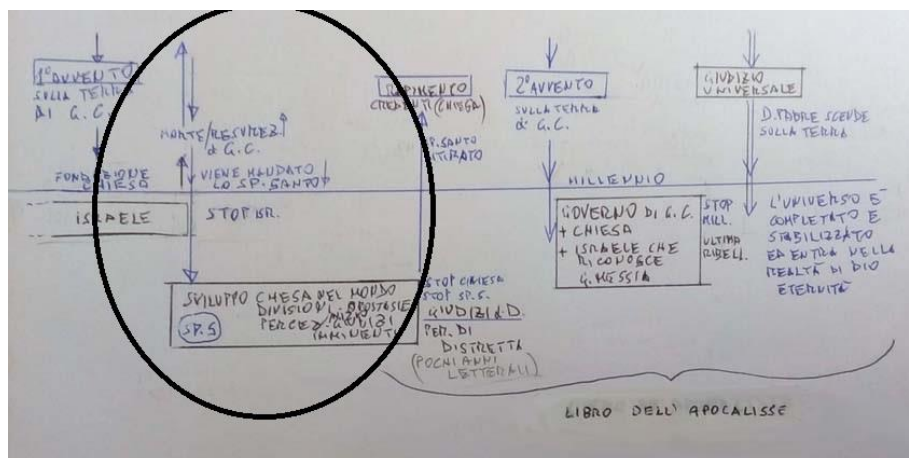 1° AVVENTO
SULLA TERRA
DI G.C.
FONDAZIONE
CHIESA
ISRAELE
MORTE/RESUREZ.
di G.C.
VIENE MANDATO
LO SP. SANTO
STOP ISR.
SVILUPPO CHIESA NEL MONDO
DIVISIONI APOSTASIE
IMMINENTI
SP.S
RAPIMENTO
CREDENTI (CHIESA)
SP. SANTO
RITIRATO
STOP CHIESA
STOP SP. S.
GIUDIZI di D.
PER. DI
DISTRETTA
(POCHI ANNI
LETTERALI)
2° AVVENTO
SULLA TERRA
di G.C.
MILLENNIO
GOVERNO DI G.C.
+ CHIESA
+ ISRAELE CHE
RICONOSCE
G. MESSIA
STOP
MILL.
ULTIMA
RIBELL.
GIUDIZIO
UNIVERSALE
D. PADRE SCENDE
SULLA TERRA
L'UNIVERSO È
COMPLETATO E
STABILIZZATO
ED ENTRA NELLA
REALTÀ DI DIO
ETERNITÀ
LIBRO DELL'APOCALISSE